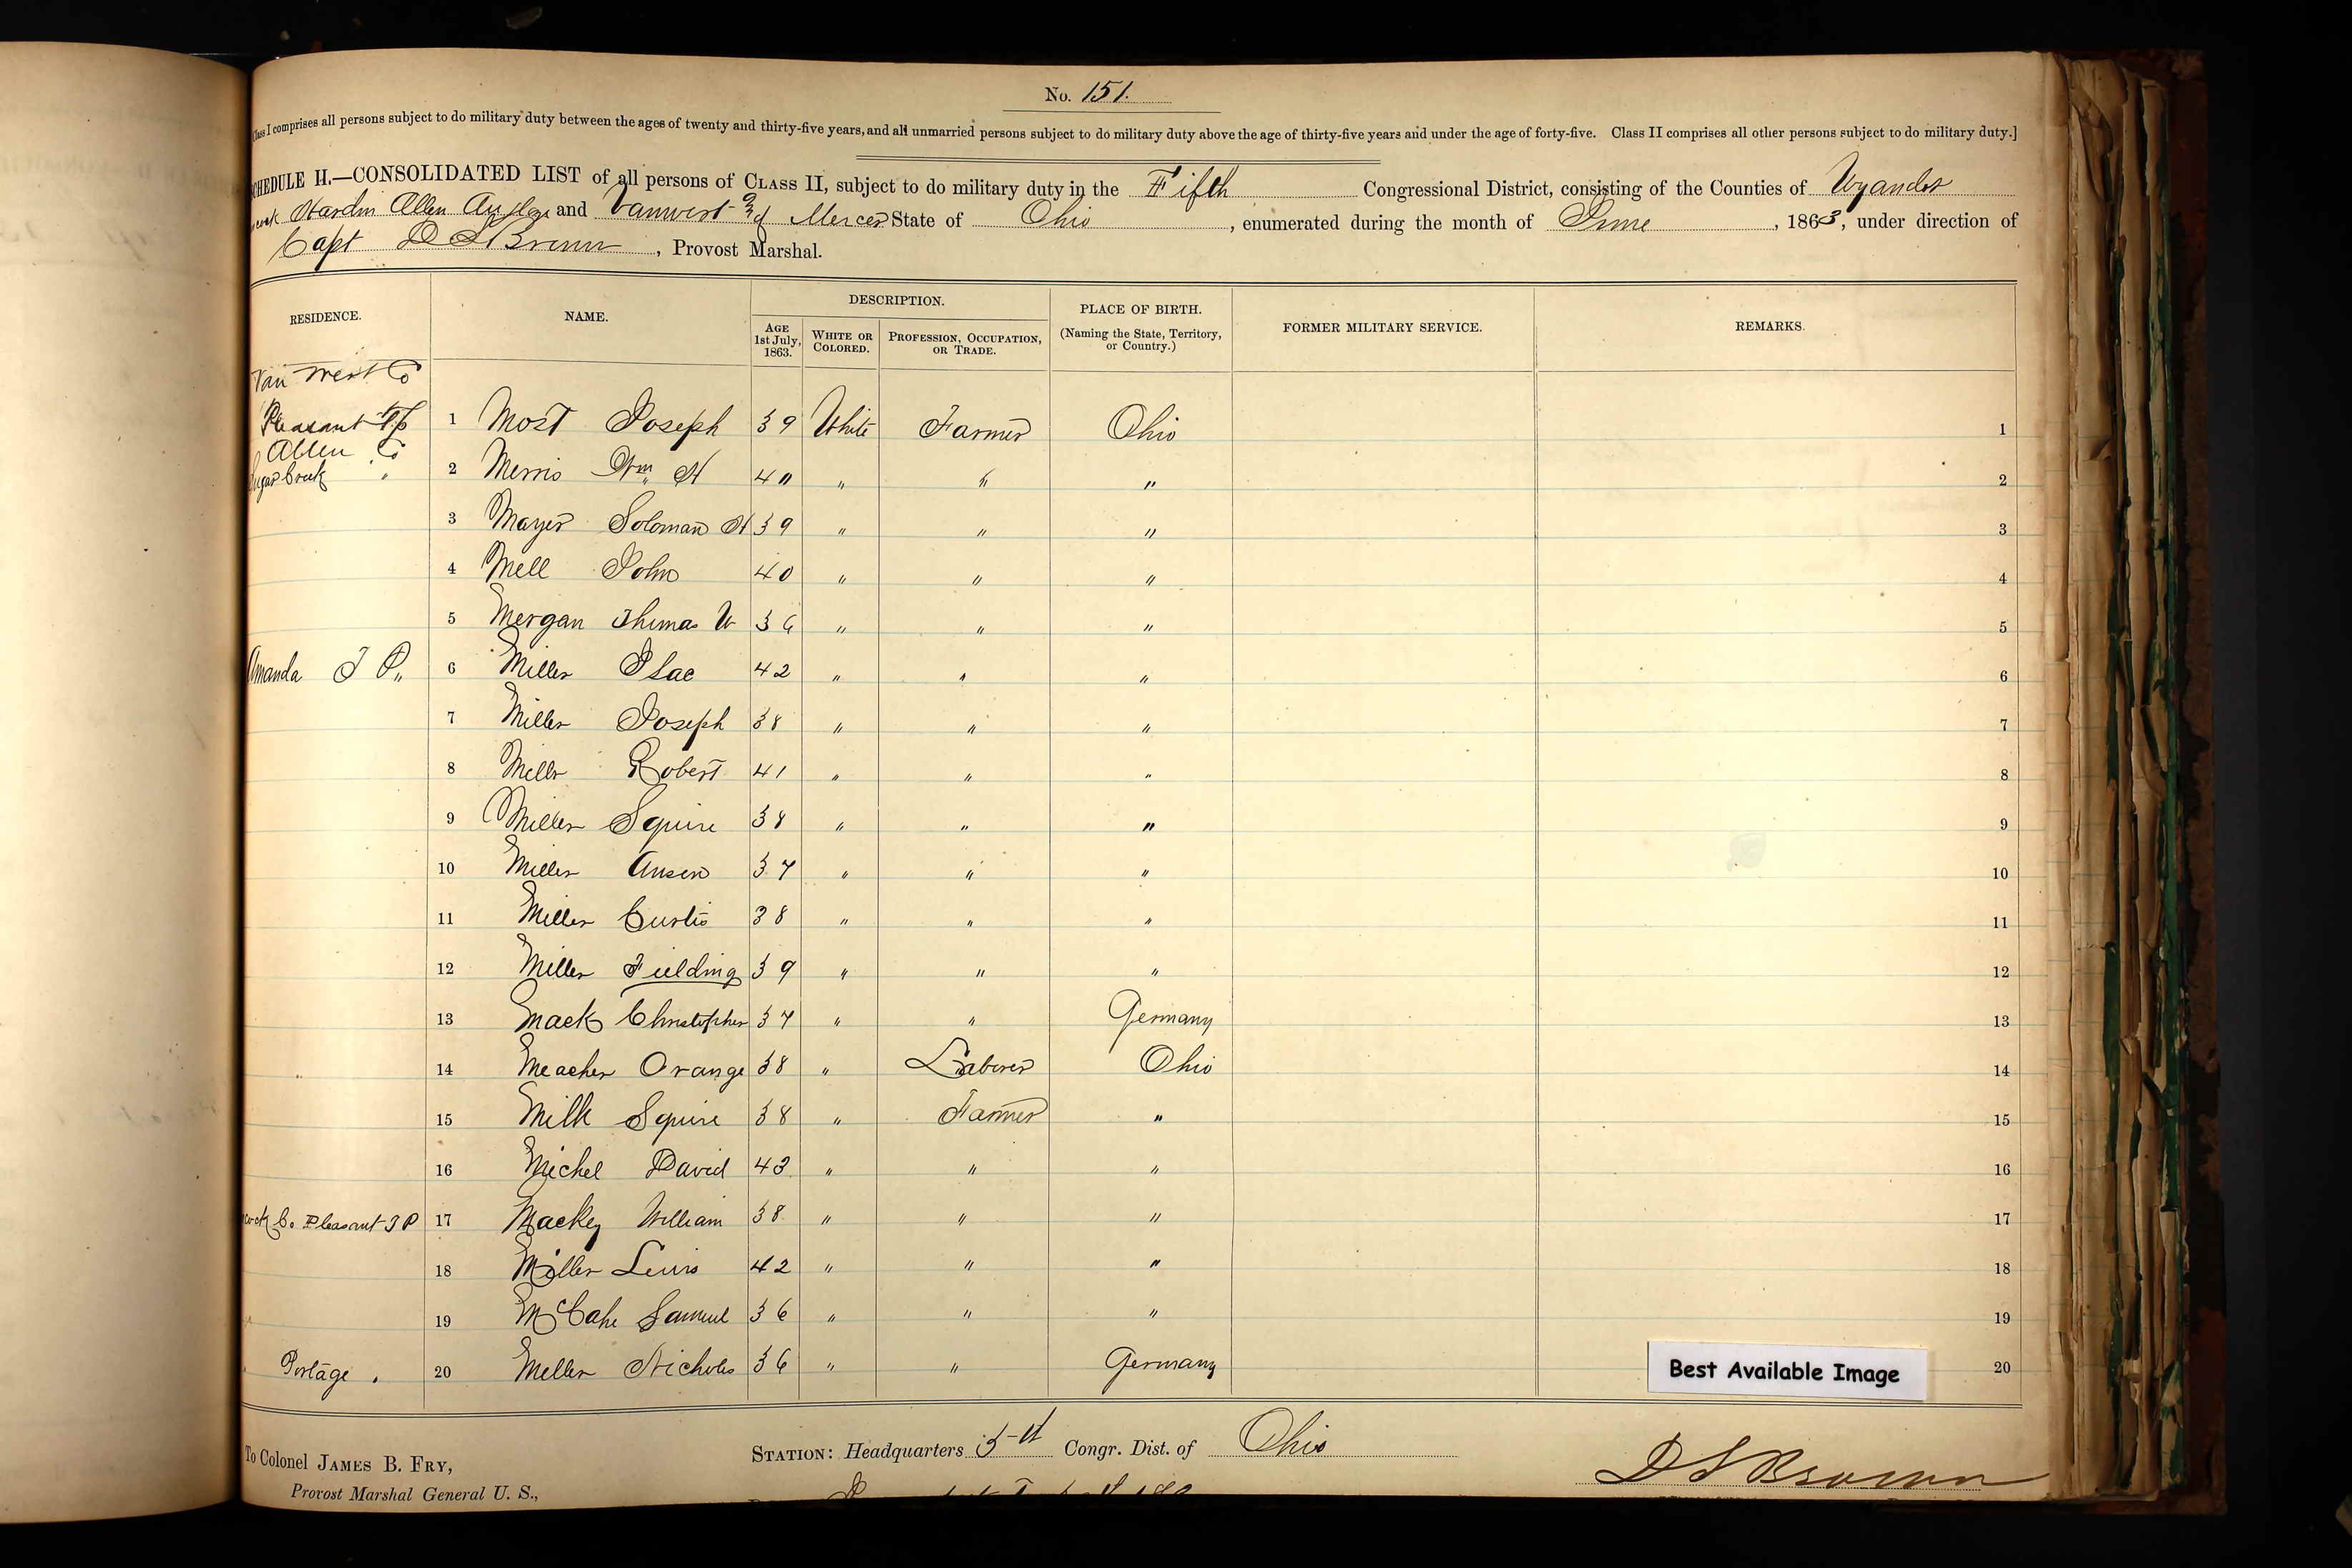 No. 151.
Class I comprises all persons subject to do military duty between the ages of twenty and thirty-five years, and all unmarried persons subject to do military duty above the age of thirty-five years and under the age of forty-five. Class II comprises all other persons subject to do military duty.]
SCHEDULE II.—CONSOLIDATED LIST of all persons of CLASS II, subject to do military duty in the Fifth Congressional District, consisting of the Counties of Wyandot
Hardin Allen Auglaize and Vanwert and Mercer State of Ohio, enumerated during the month of June, 1863, under direction of
Capt D S Brown, Provost Marshal.
RESIDENCE. NAME. DESCRIPTION. PLACE OF BIRTH. FORMER MILITARY SERVICE. REMARKS.
AGE 1st July, 1863. WHITE OR COLORED. PROFESSION, OCCUPATION, OR TRADE. (Naming the State, Territory, or Country.)
Van Wert Co
Pleasant Tp 1 Most Joseph 39 White Farmer Ohio 1
Allen Co
Sugar Creek " 2 Merris Wm H 40 " " " 2
3 Mayer Soloman H 39 " " " 3
4 Mell John 40 " " " 4
5 Mergan Thimas W 36 " " " 5
Amanda T P " 6 Miller Isac 42 " " " 6
7 Miller Joseph 38 " " " 7
8 Miller Robert 41 " " " 8
9 Miller Squire 38 " " " 9
10 Miller Ansen 37 " " " 10
11 Miller Curtis 38 " " " 11
12 Miller Fielding 39 " " " 12
13 Mack Christopher 37 " " Germany 13
14 Meacher Orange 38 " Laborer Ohio 14
15 Milk Squire 38 " Farmer " 15
16 Michel David 43 " " " 16
Co. Pleasant T P 17 Mackey William 38 " " " 17
18 Miller Lewis 42 " " " 18
19 Samuel 36 " " " 19
Portage " 20 Meller Nicholes 36 " " Germany 20
Best Available Image
To Colonel JAMES B. FRY,
Provost Marshal General U. S.,
STATION: Headquarters 5th Congr. Dist. of Ohio
D S Brown